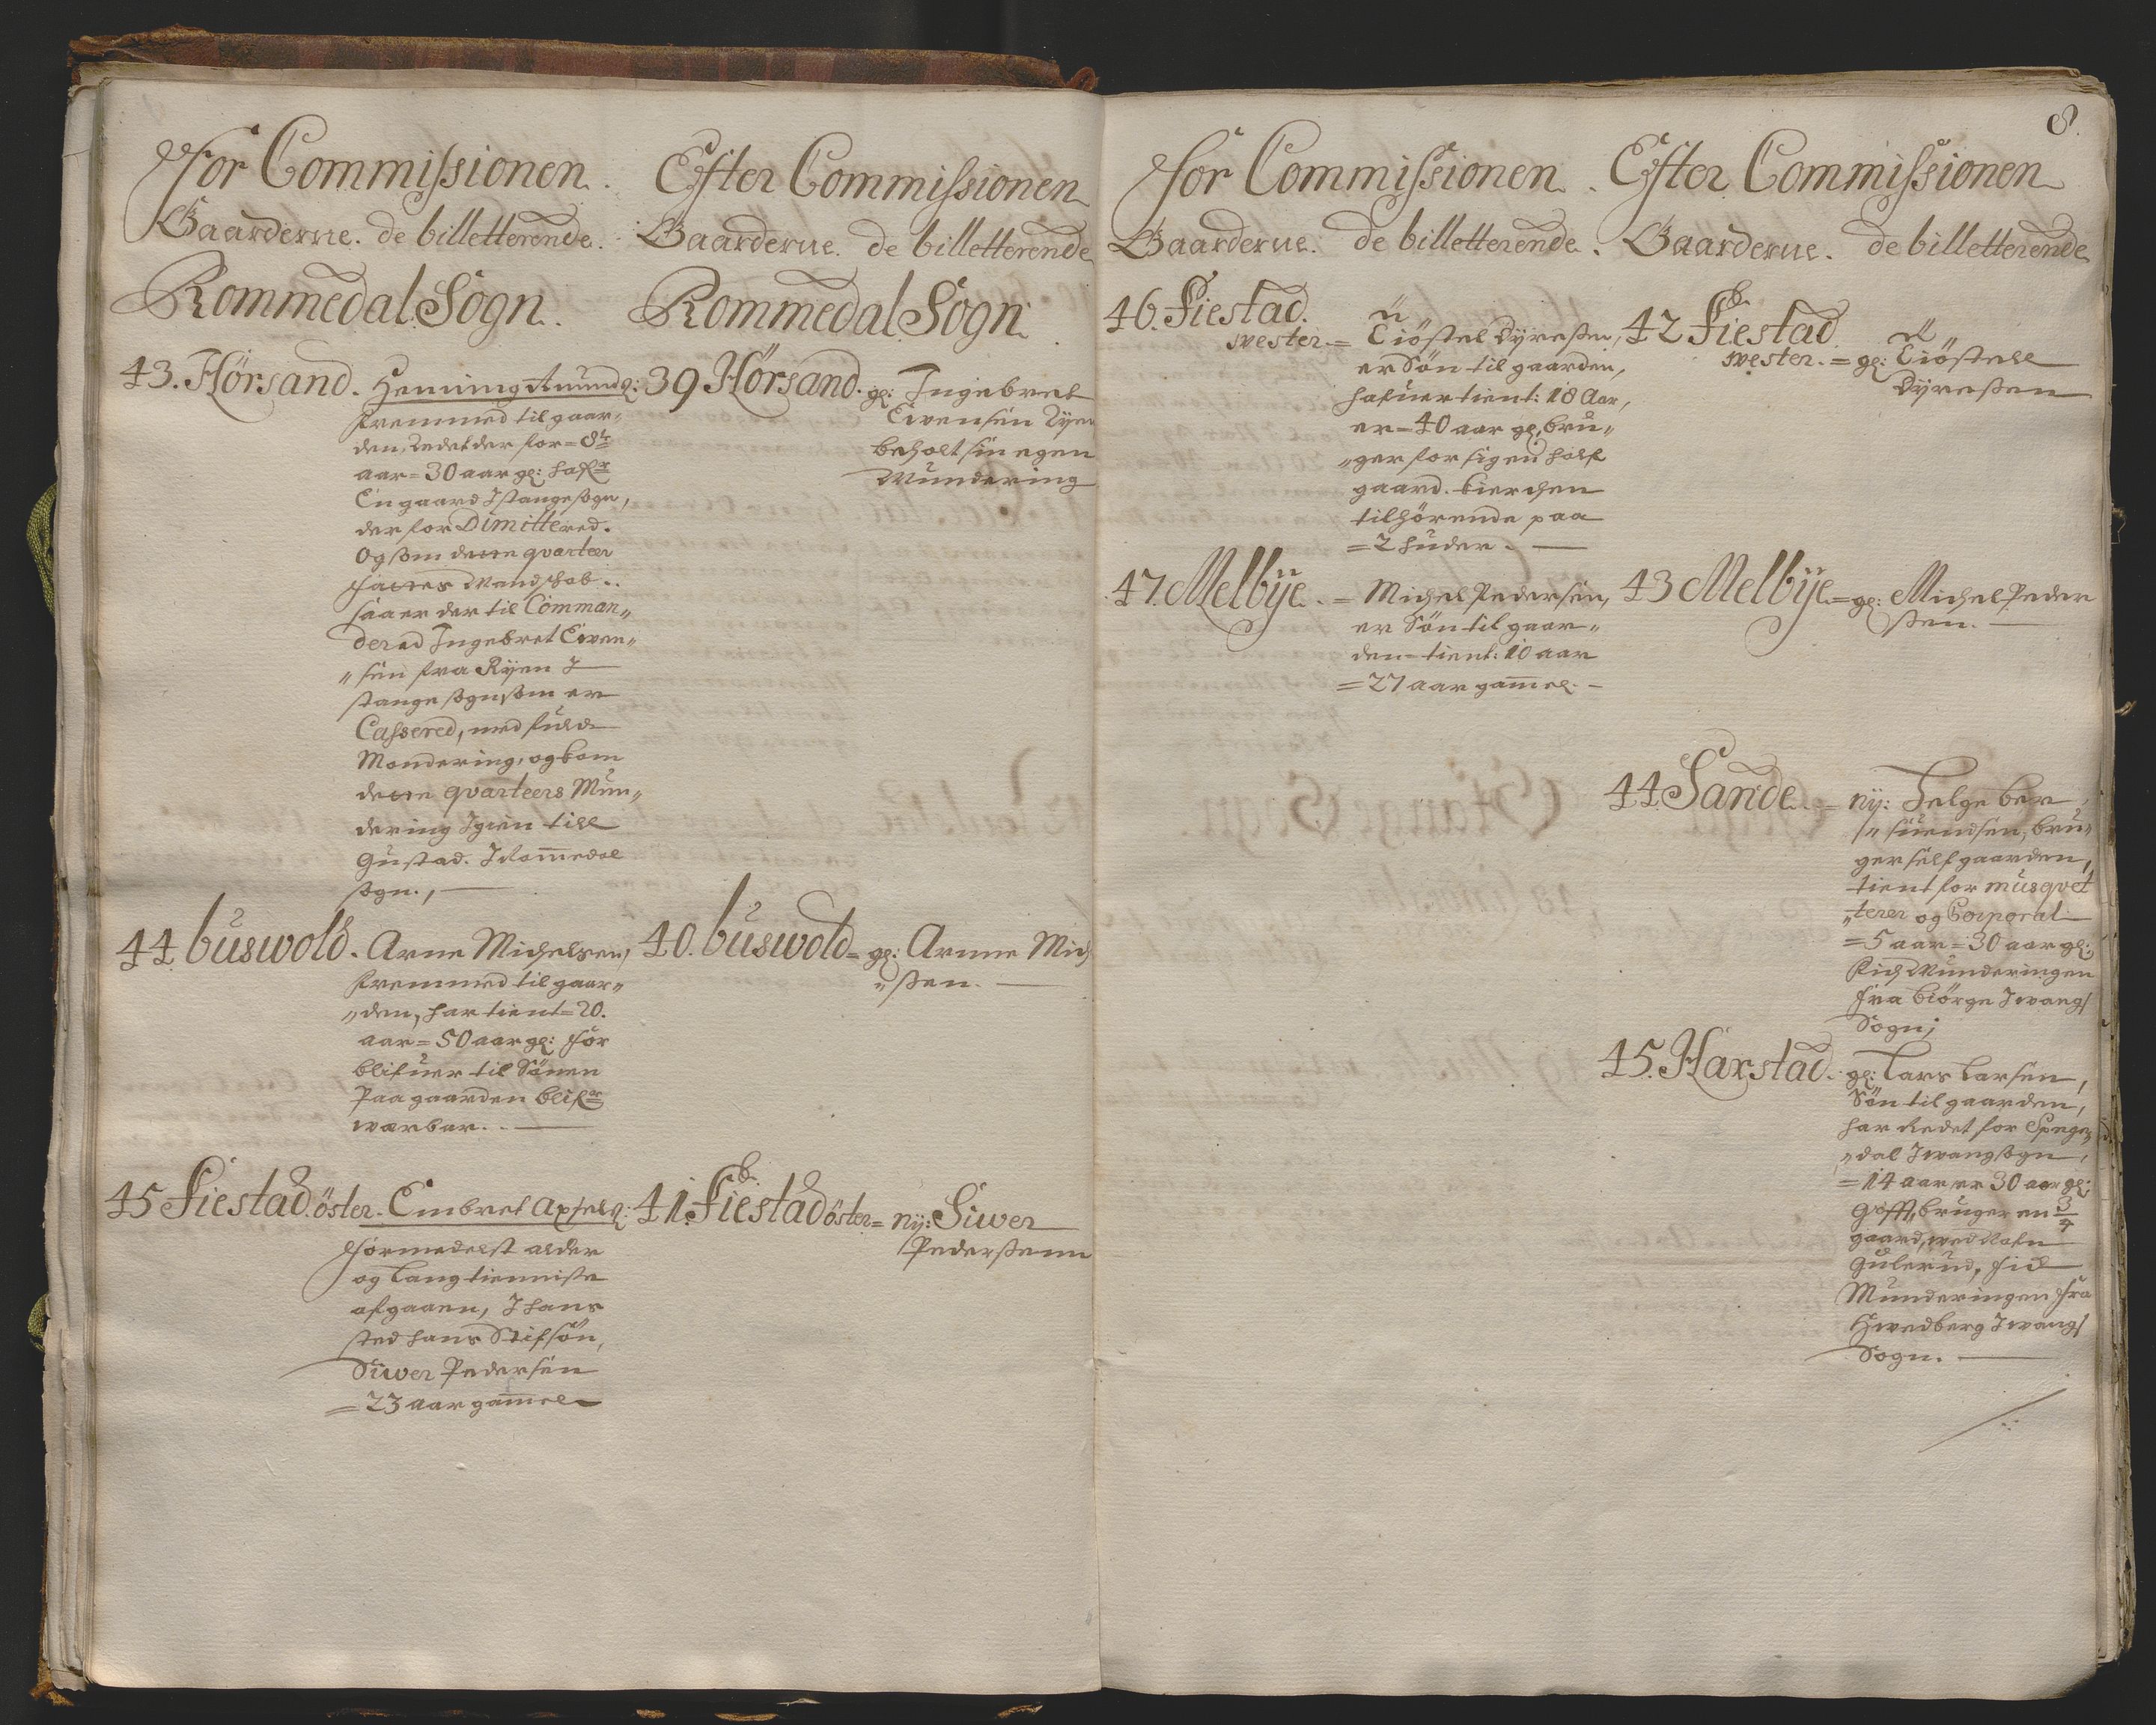 For Commissionen.
Gaarderne. de billetterende.
Rommedal Sogn.
43. Hörsand. Henning Amunds:
fremmed til gaar„
den, Redet der for = 8te
aar = 30 aar gl: hafr
En gaard J stange sogn,
der for Dimittered.
Og som dette qvarteer
fattes Mandskab..
saa er der til Comman„
derad Ingebret Ewen„
„sen fra Ryen J
stange sogn som er
Cassered, med fuld
Mondering, og kom
dette qvarteers Mun„
dering Igien till
Gustad. J Rommedal
sogn.,
44 buswold. Arne Michelsen,
fremmed til gaar„
„den, har tient = 20.
aar = 50 aar gl: for
blifuer til Sönen
Paa gaarden blifr
werbar..
45 Fiestad. öster. Embret Axsels:
Formedelst alder
og lang tienniste
afgaaen, J hans
sted hans Stifsön,
Siwer Pedersen
= 23 aar gam̄el
Efter Commissionen
Gaarderne. de billetterende
Rommedal Sogn
39 Hörsand. gl: Ingebret
Ewensen Ryen
beholt sin egen
Mundering
40. buswold = gl: Arnne Mich
„sen.
41. Fiestad öster = nÿ: Siwer
Pedersenn
8.
For Commissionen.
Gaarderne. de billetterende.
46. Fiestad.
wester. = Tiöstel Dyresen,
er Sön til gaarden,
hafuer tient: 18 Aar,
er = 40 aar gl, bru„
„ger for sig en half
gaard. kierchen
tilhörende paa
= 2 huder.
47. Melbÿe. = Michel Pedersen,
er Sön til gaar„
den = tient: 10 aar
= 27 aar gam̄el.
Efter Commissionen
Gaarderne. de billetterende
42 Fiestad
wester. = gl: Tiöstell
Dyresen
43 Melbÿe = gl: Michel Peder
sen.
44 Sande. = nÿ: Helge ber
„suendsen, bru„
ger self gaarden,
tient for musqvet
„terer og Corporal
= 5 aar = 30 aar gl:
fich Munderingen
fra biörge J wangs
Sogn;
45. Harstad. gl: Lars Larsen,
Sön til gaarden,
har Redet for
„dal J wang sogn,
= 14 aar er 30 aar gl:
gift, bruger en 3/4
gaard, wed Nafn
Gulerud, fich
Munderingen fra
Hwedberg J wangs
Sogn.